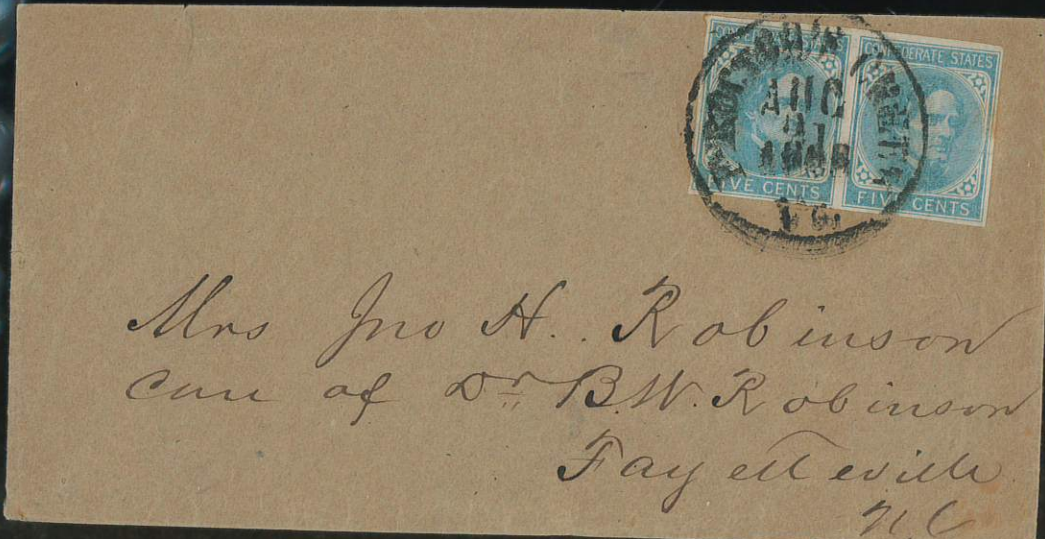 CONFEDERATE STATES
AUG
21
Va.
FIVE CENTS
FIVE CENTS
Mrs Jno H. Robinson
Care of Dr B.W. Robinson
Fayetteville
N C